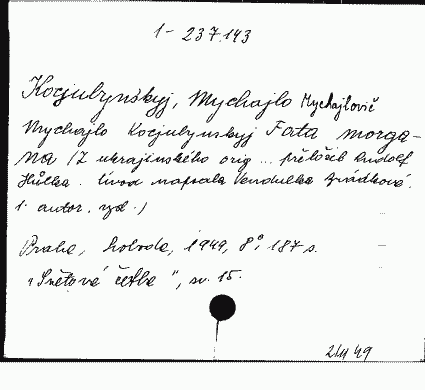 1- 237.143
Kocjubynśkyj, Mychajlo Mychajlovič
Mychajlo Kocjubynskyj Fata morga-
na /Z ukrajinského orig... přeložil Rudolf
Hůlka. Úvod napsala Vendulka Zvádková.
1. autor. vyd./
Praha, Svoboda, 1949, 8°, 187 s.
"Světová četba", sv. 15.
49